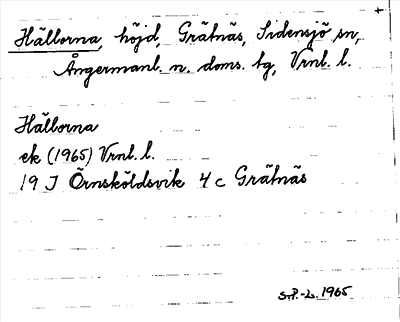 Hällorna, höjd, Grätnäs, Sidensjö sn,
Ångermanl. n. doms. tg, Vrnl. l.
Hällorna
ek (1965) Vrnl. l.
19 J Örnsköldsvik 4 c Grätnäs
S.P.-L. 1965